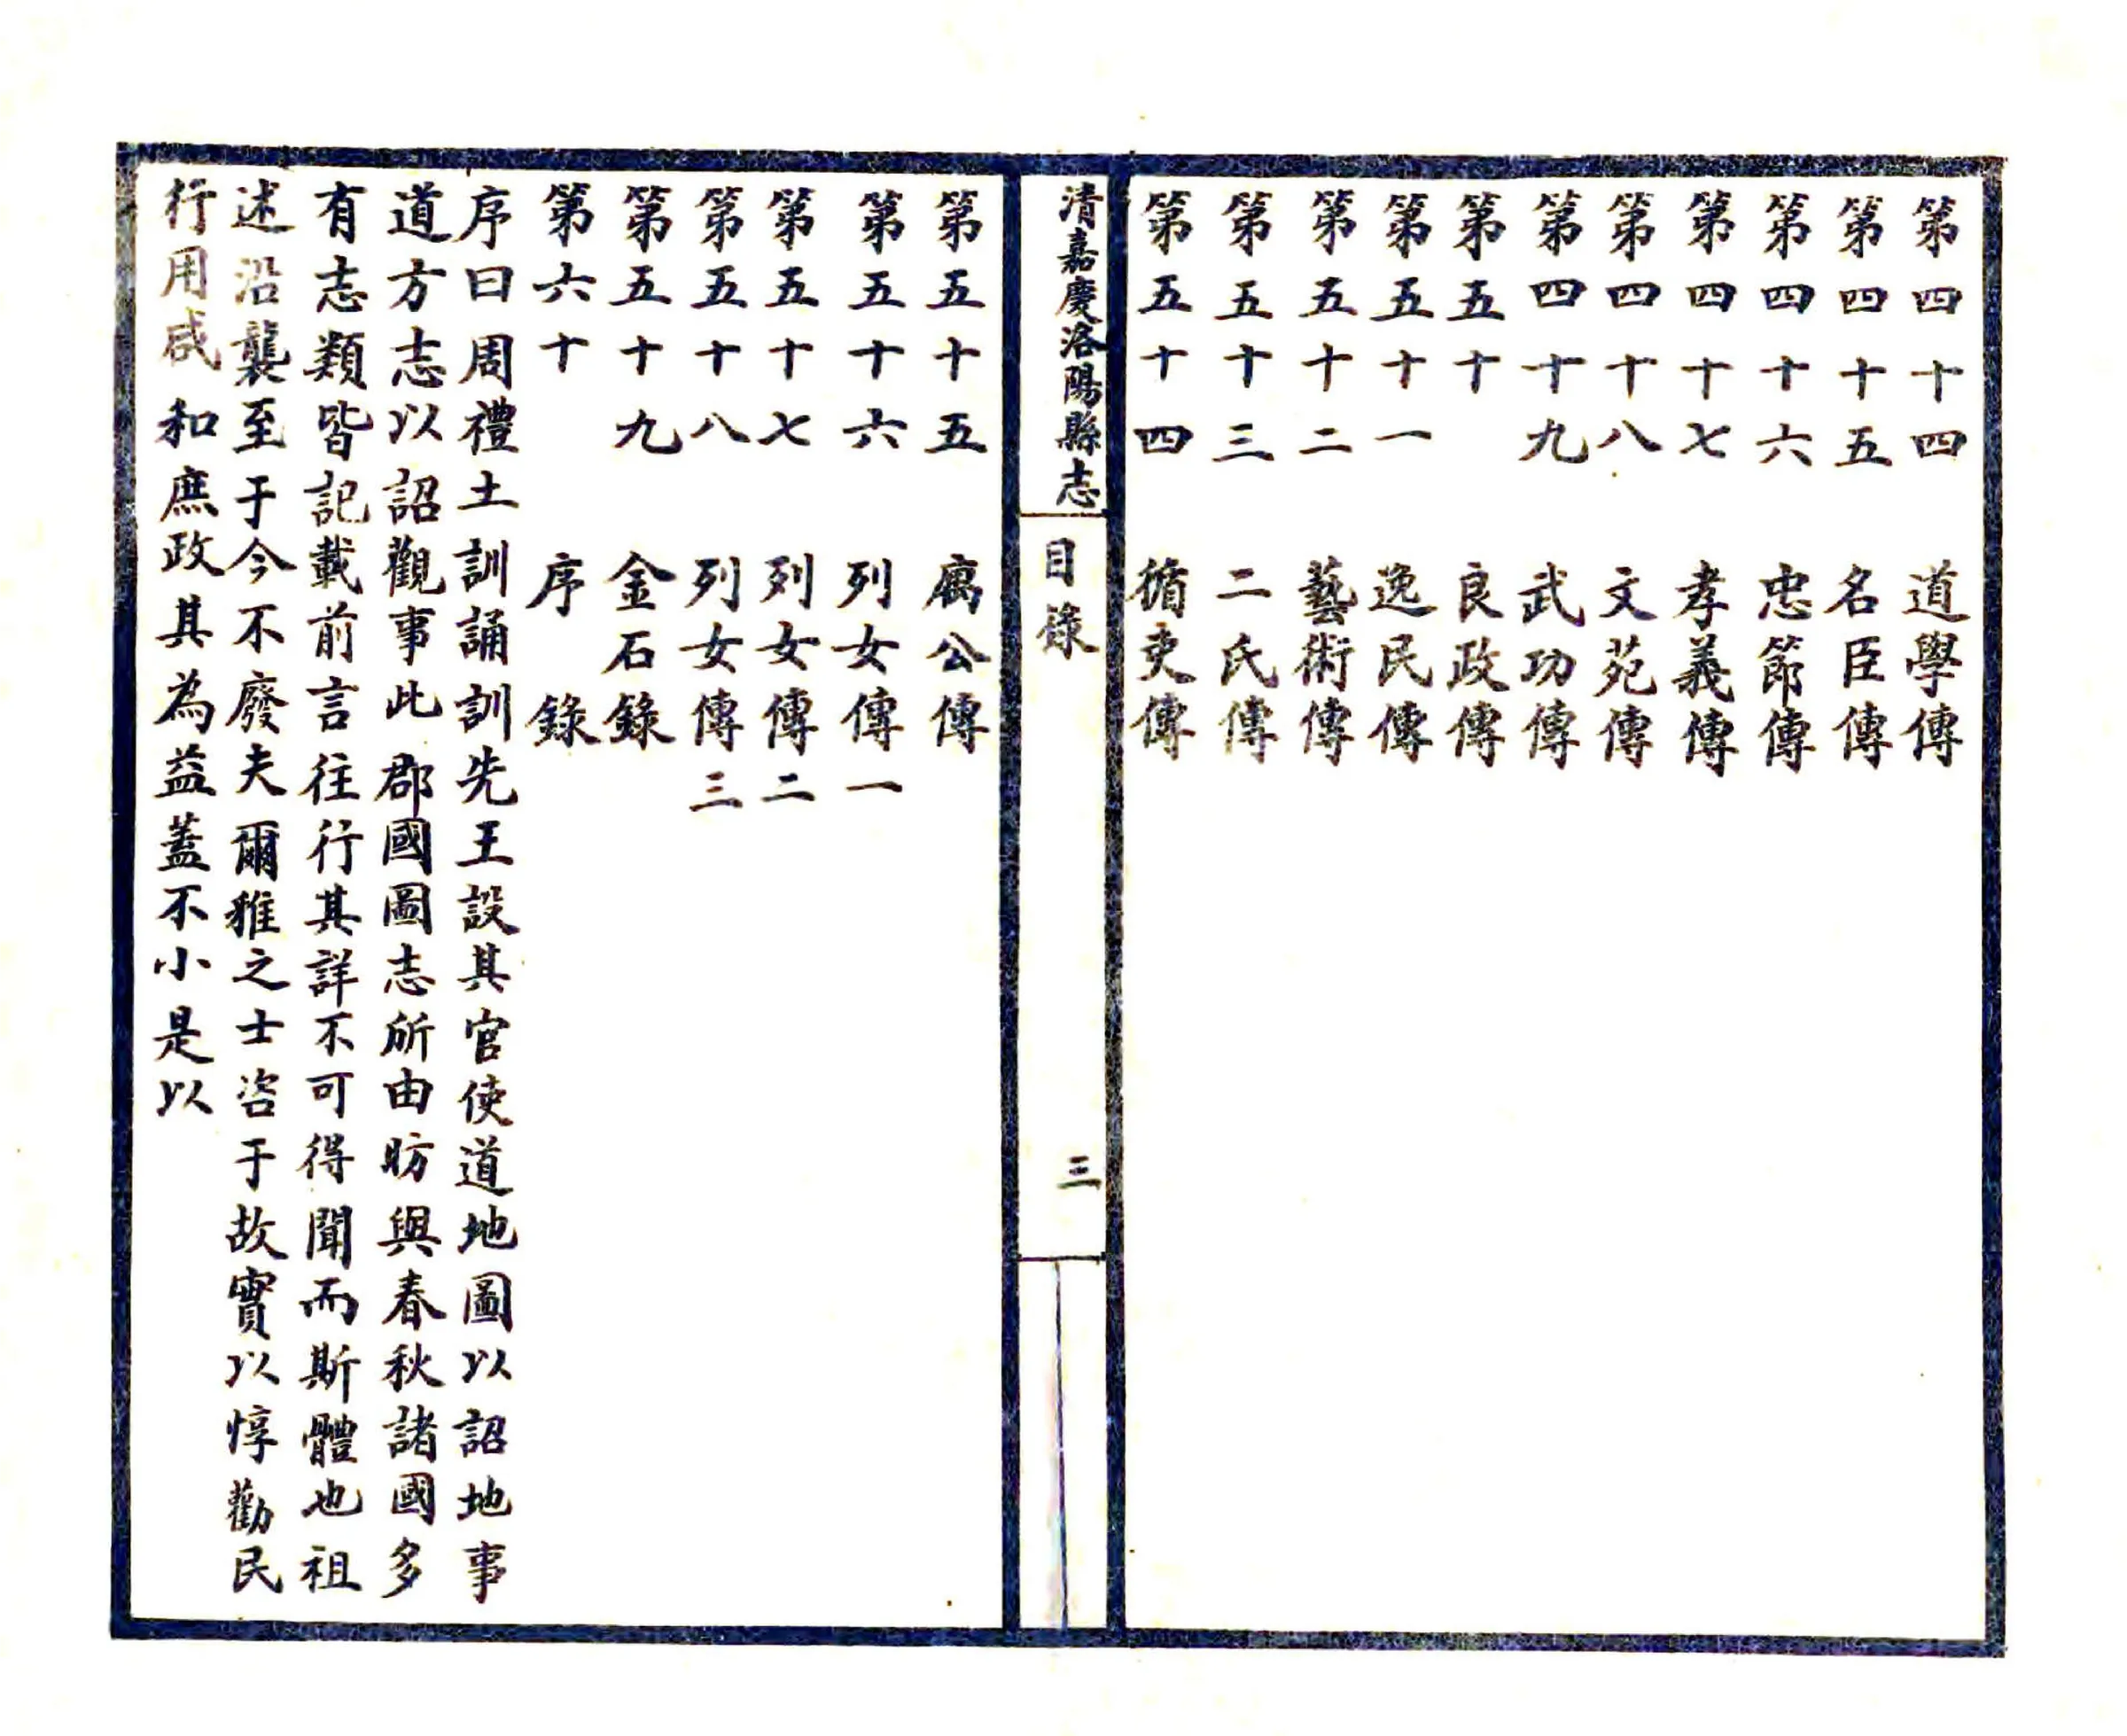 第四十四　道學傳
第四十五　名臣傳
第四十六　忠節傳
第四十七　孝義傳
第四十八　文苑傳
第四十九　武功傳
第五十　良政傳
第五十一　逸民傳
第五十二　藝術傳
第五十三　二氏傳
第五十四　循吏傳
清嘉慶洛陽縣志　目錄　三
第五十五　寓公傳
第五十六　列女傳一
第五十七　列女傳二
第五十八　列女傳三
第五十九　金石錄
第六十　序錄
序曰周禮土訓誦訓先王設其官使道地圖以詔地事
道方志以詔觀事此郡國圖志所由昉與春秋諸國多
有志類皆記載前言往行其詳不可得聞而斯體也祖
述沿襲至于今不廢夫爾雅之士咨于故實以惇勸民
行用咸和庶政其為益蓋不小是以